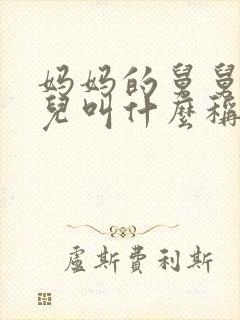 妈妈的舅舅
兒叫什麼稱
盧斯費利斯